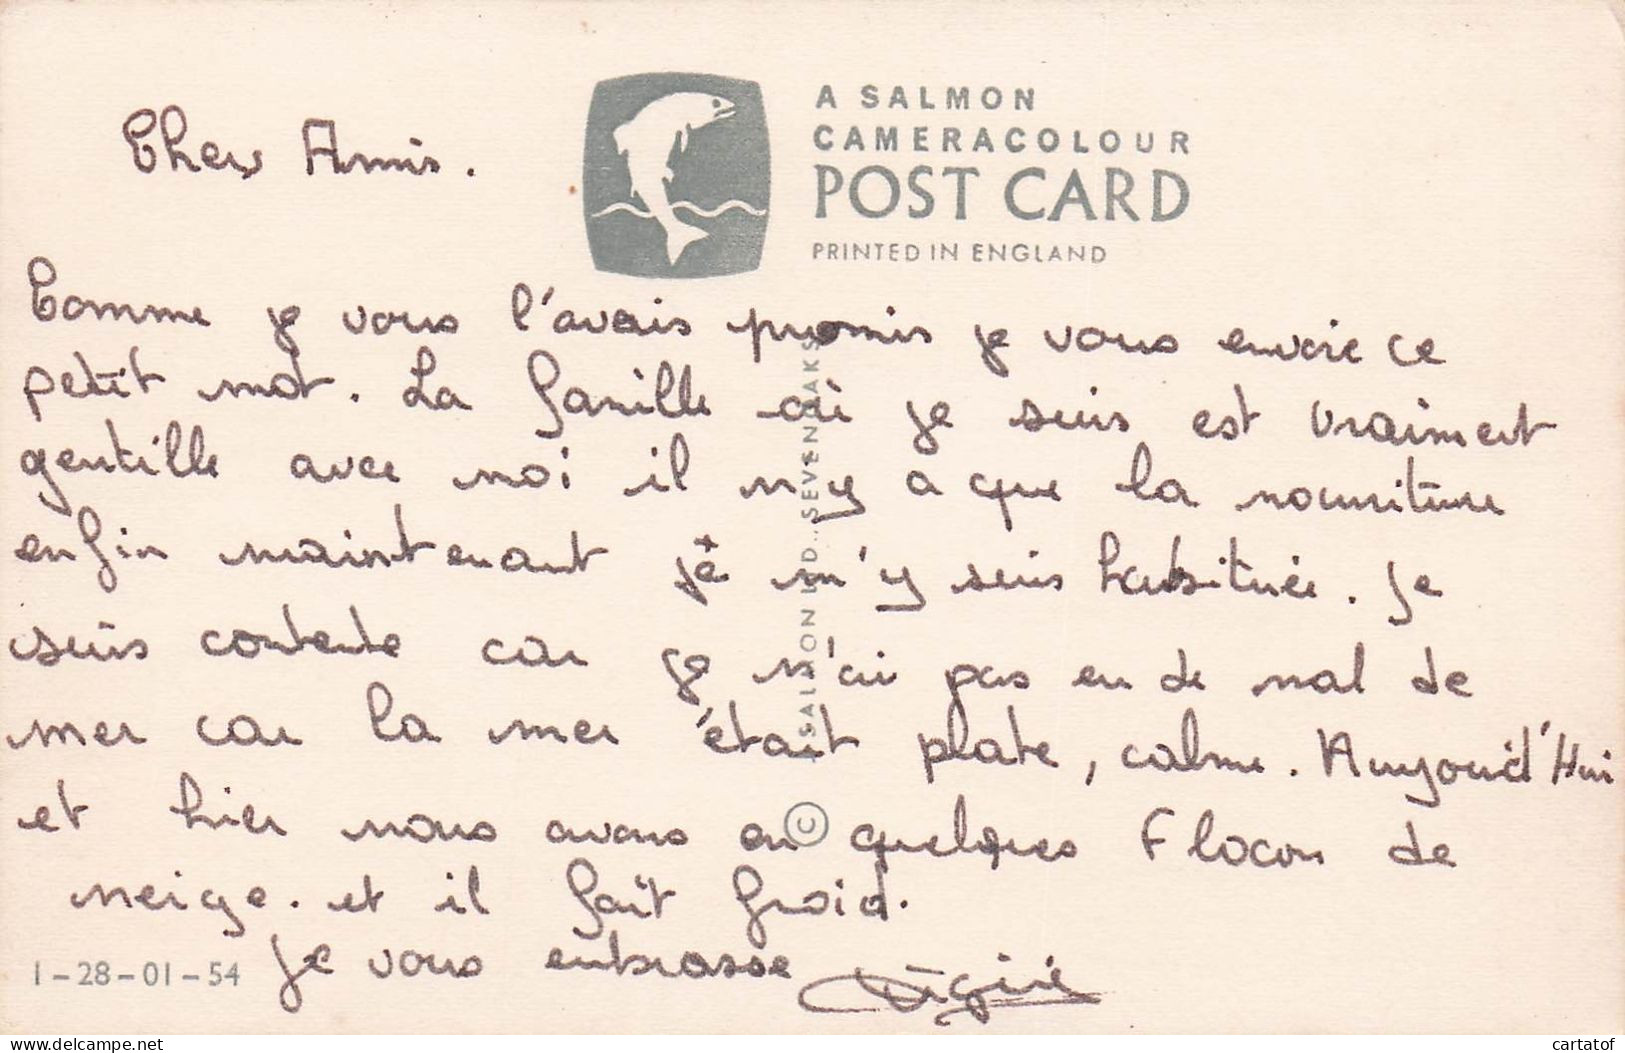 A SALMON
CAMERACOLOUR
POST CARD
PRINTED IN ENGLAND
Cher Amis.
Comme je vous l'avais promis je vous envoie ce
petit mot. La famille où je suis est vraiment
gentille avec moi il n'y a que la nourriture
enfin maintenant je m'y suis habituée. Je
suis contente car je n'ai pas eu de mal de
mer car la mer était plate, calme. Aujourd'Hui
et hier nous avons eu quelques Flocon de
neige. et il fait froid.
Je vous embrasse
J SALMON LTD., SEVENOAKS
©
1-28-01-54
cartatof